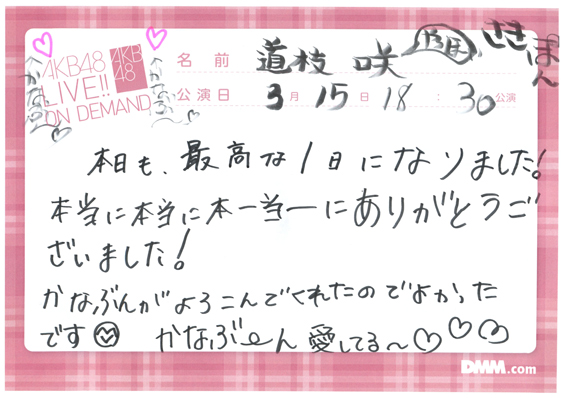 AKB48
LIVE!!
ON DEMAND
AKB
48
名前 道枝 咲 さきぽん
公演日 3月15日 18:30公演
本日も、最高な1日になりました!
本当に本当に本一当一にありがとうご
ざいました!
かなぶんがよろこんでくれたのでよかった
です かなぶ〜ん 愛してる〜♡♡♡
DMM.com